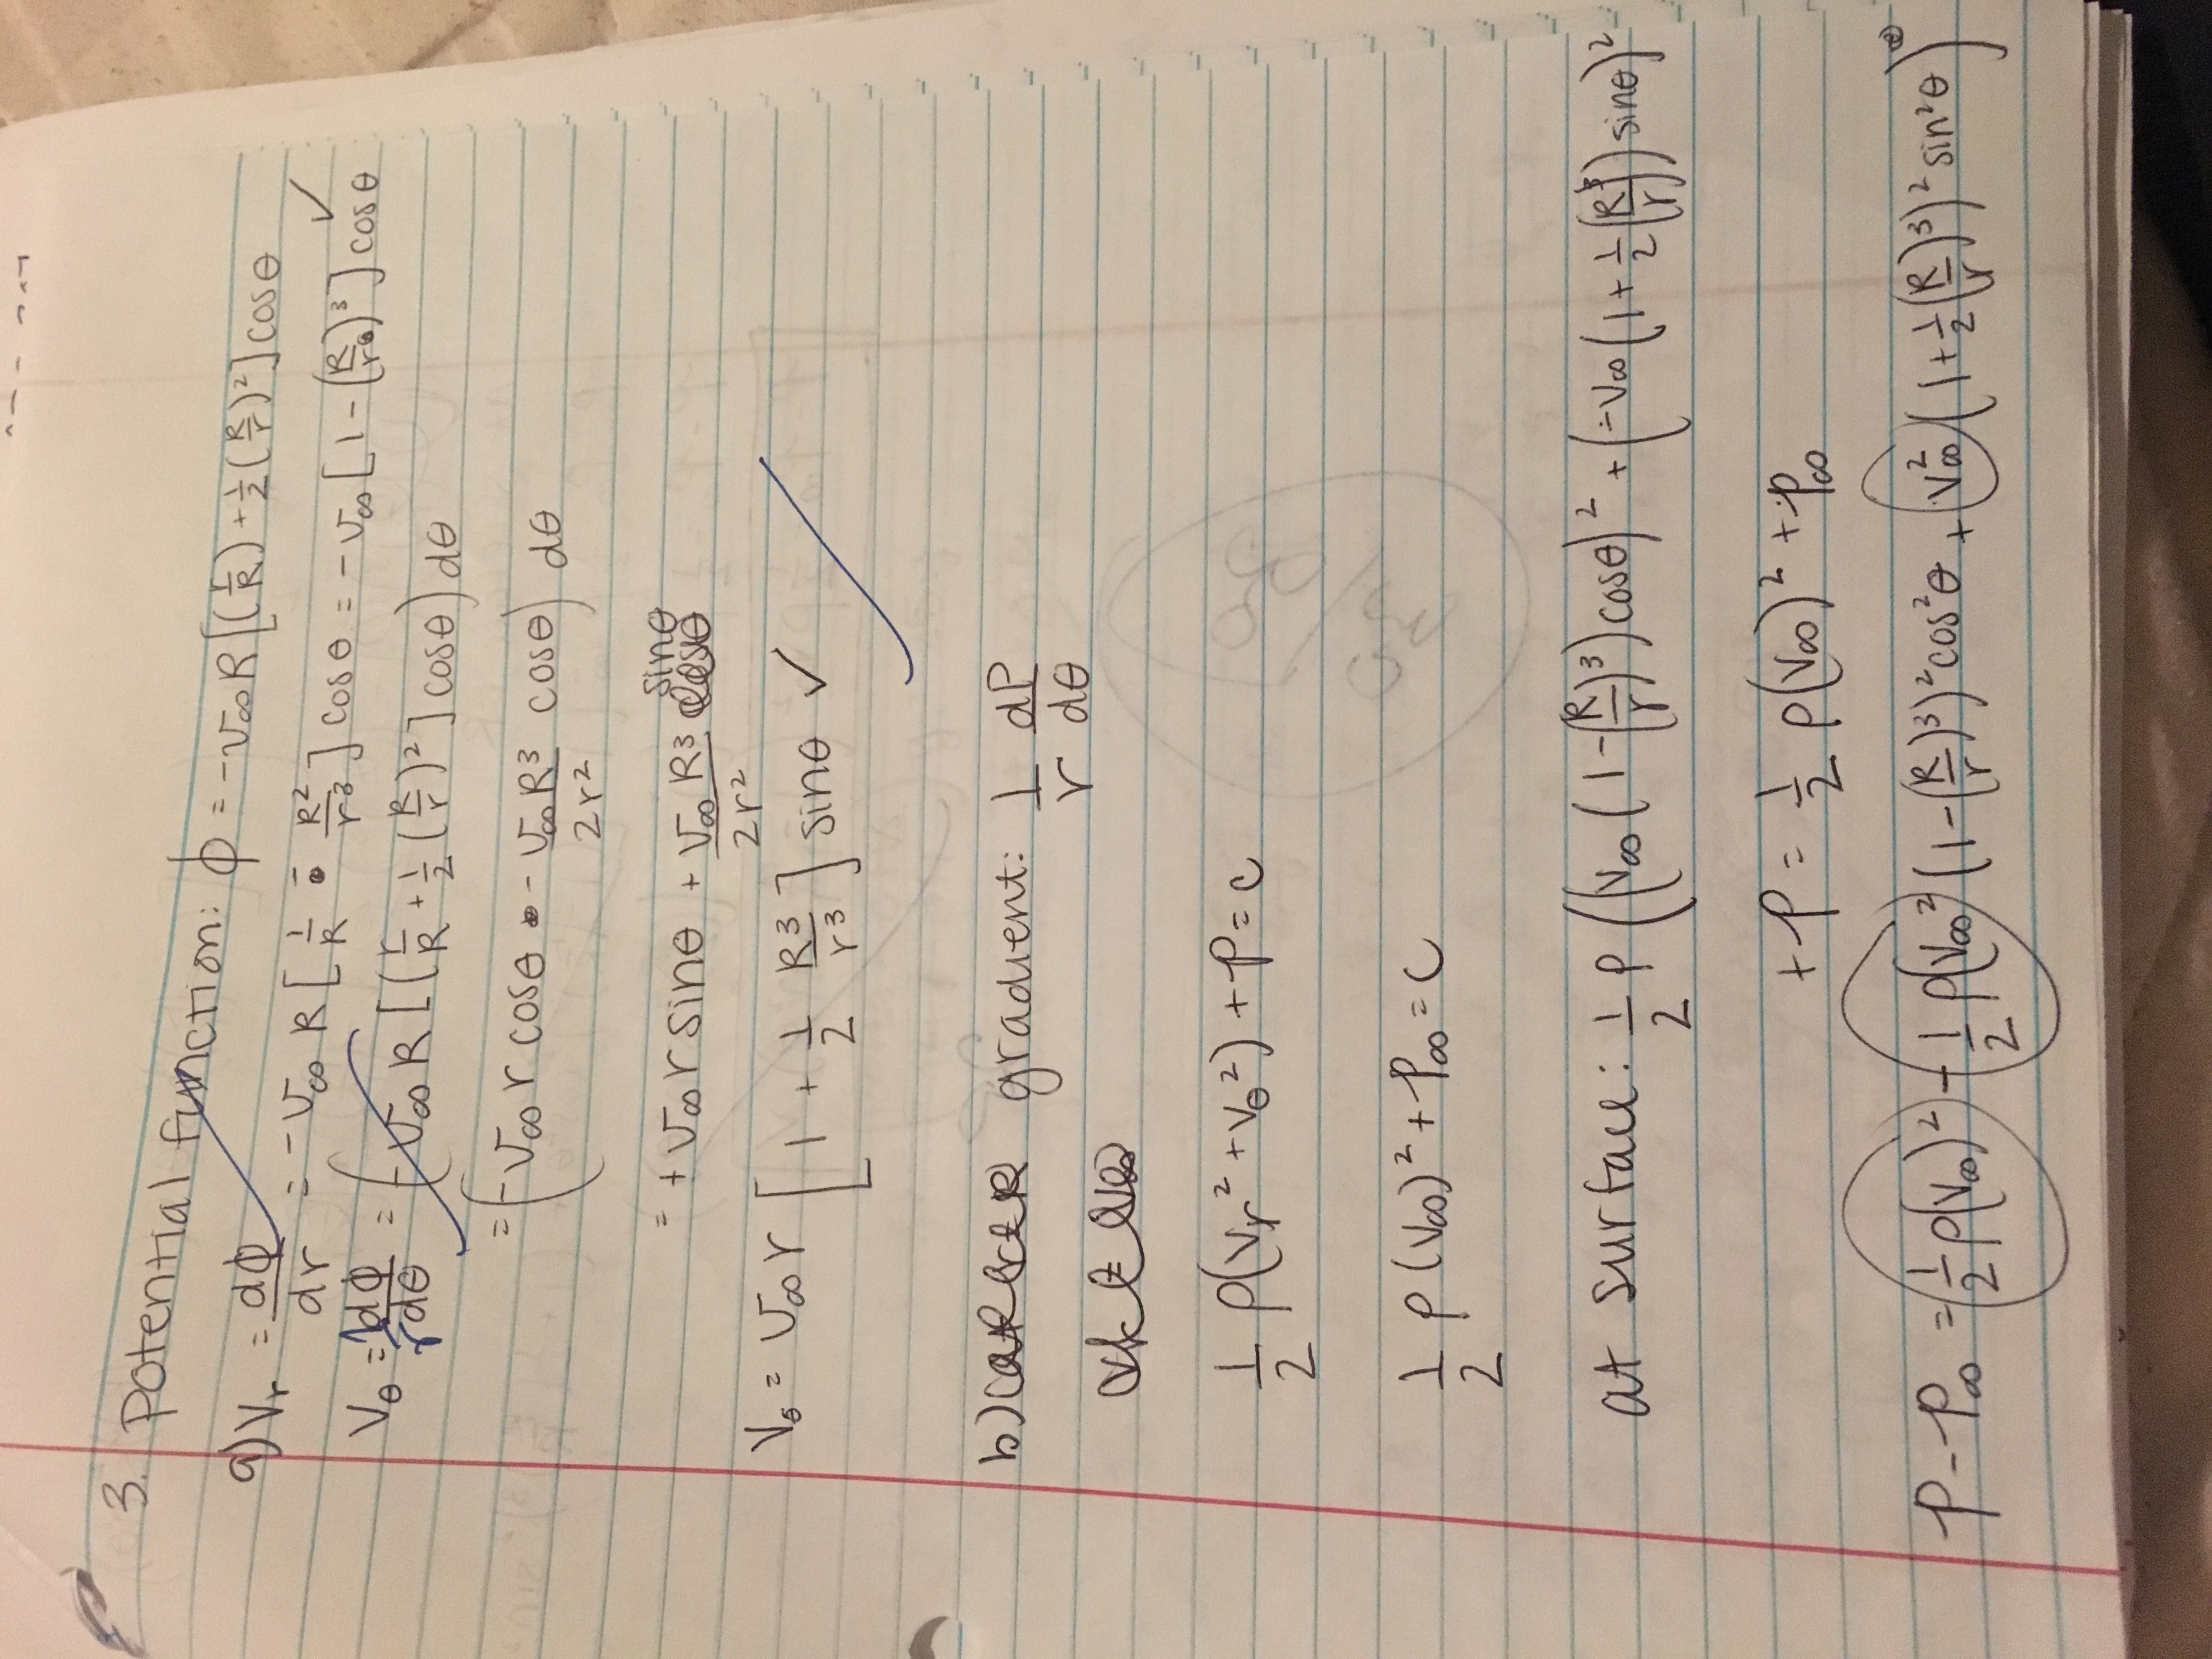 3. Potential function: ϕ = -v∞ R [(r/R) + 1/2 (R/r)²] cosθ
a) Vr = dϕ/dr = -v∞ R [1/R - R²/r³] cosθ = -v∞ [1 - (R/r)³] cosθ ✓
Vθ = 1/r dϕ/dθ = (-v∞ R [(r/R + 1/2 (R/r)²] cosθ) dθ
= (-v∞ r cosθ - v∞R³/2r² cosθ) dθ
= + v∞ r sinθ + v∞ R³/2r² sinθ
Vθ = v∞ r [1 + 1/2 R³/r³] sinθ ✓
b) gradient: 1/r dP/dθ
1/2 ρ(Vr² + Vθ²) + P = c
1/2 ρ (V∞)² + P∞ = c
at surface: 1/2 ρ ((V∞ (1 - (R/r)³) cosθ)² + (-V∞ (1 + 1/2 (R/r)³) sinθ)²
+ P = 1/2 ρ(V∞)² + P∞
P - P∞ = 1/2 ρ(V∞)² - 1/2 ρ(V∞² (1 - (R/r)³)² cos²θ + V∞² (1 + 1/2 (R/r)³)² sin²θ)